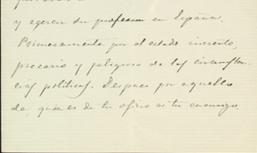 y ejercer su profesion en España.
Primeramente por el estado incierto,
precario y peligroso de las circunstan-
cias politicas. Despues por aquello
de quien es de tu oficio es tu enemigo.